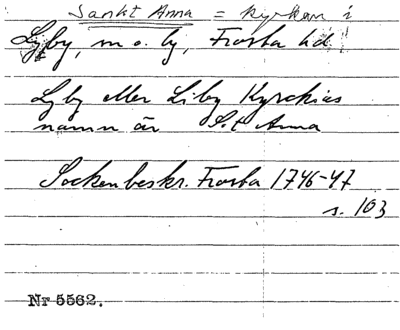 Sankt Anna = kyrkan i
Lyby, m o. by, Frosta hd
Lyby eller Liby Kyrckias
namn är S:t Anna
Sockenbeskr. Frosta 1746-47
s. 103
Nr 5562.